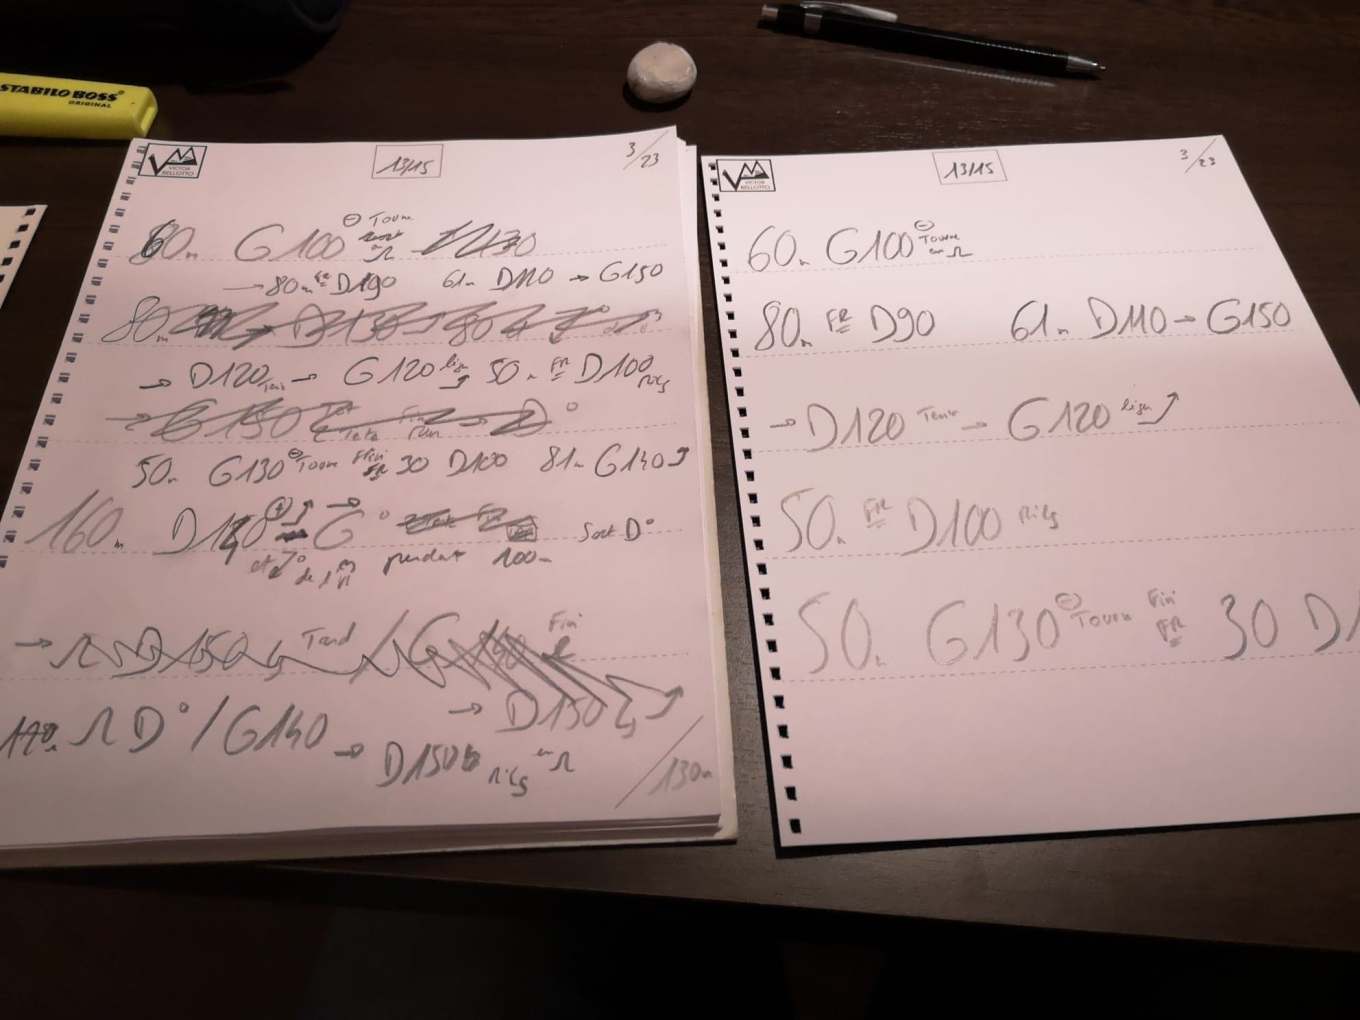 STABILO BOSS
ORIGINAL
VM
VICTOR
BELLOTTO
13/15
3/23
60m G100 ⊖ Tourne
en Ω
→ 80m FR D190 61m D110 → G150
80m
→ D120 Tend → G120 lign ⤴ 50m FR D100
→ G150 Tete Fin run → D°
50m G130 ⊖ Tourne Fini FR 30 D100 81m G140 ⤴
160m D140 ⊕ → G° Sort D°
et de pendant 100m
→ Ω D150 Tard / G190 Fini
→ D150 ⤴
Ω D° / G140 → D150 en Ω
/130m
VM
VICTOR
BELLOTTO
13/15
3/23
60m G100 ⊖ Tourne
en Ω
80m FR D90 61m D110 → G150
→ D120 Tend → G120 lign ⤴
50m FR D100
50m G130 ⊖ Tourne Fini FR 30 D1